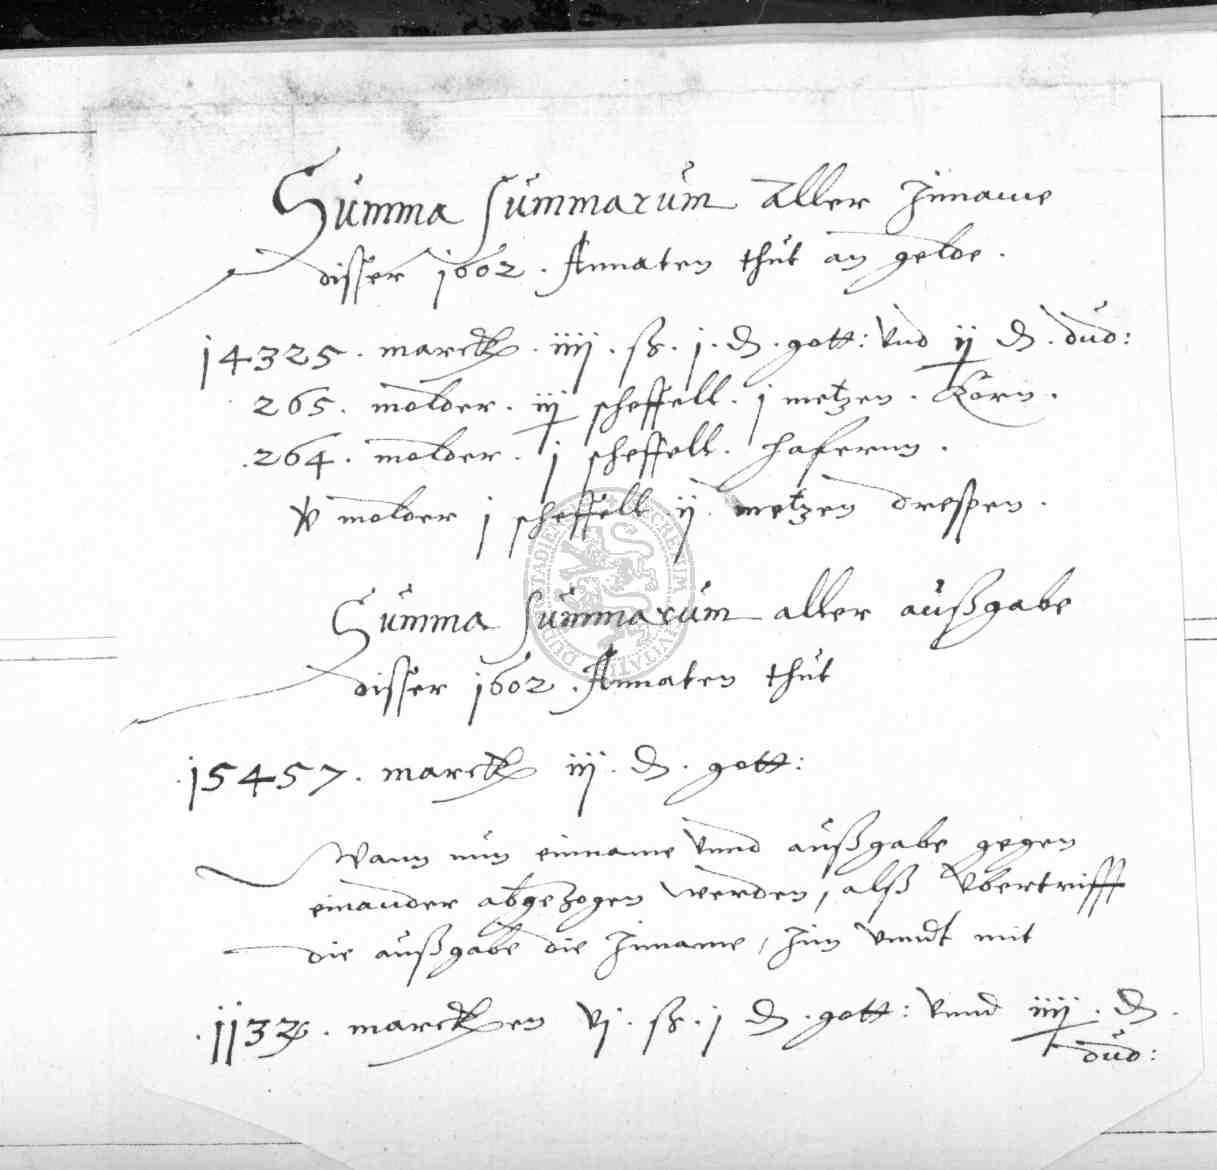 Summa Summarum aller Inname
disser 1602. Annaten thut an gelde.
14325. marck. iiij. ß. j. ₰. gott: vnd ij ₰. dud:
265. molder. iij scheffell. j metzen. Korn.
.264. molder. j scheffell. hafernn.
v molder j scheffell. ij. metzen drespen.
Summa Summarum aller außgabe
disser 1602. Annaten thut
.15457. marck iij. ₰. gott:
Wann nun einname vnnd außgabe gegen
einander abgezogen werden, alß vbertrifft
die außgabe die Inname, Inn vnndt mit
.1132. marcken vj. ß. j ₰. gott: vnnd iiij. ₰.
dud:
SECRETUM CIVITATIS DUDERSTADIENSIS